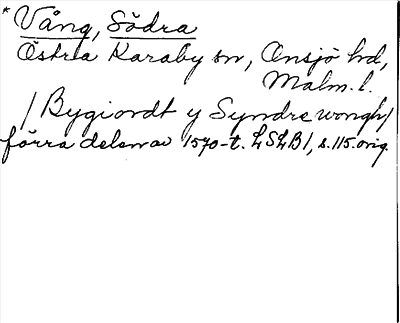 * Vång, Södra
Östra Karaby sn, Onsjö hd,
Malm. l.
/Bygiordt y Syndre wongh/
förra delen av 1570-t. LSLB1, s. 115. orig.